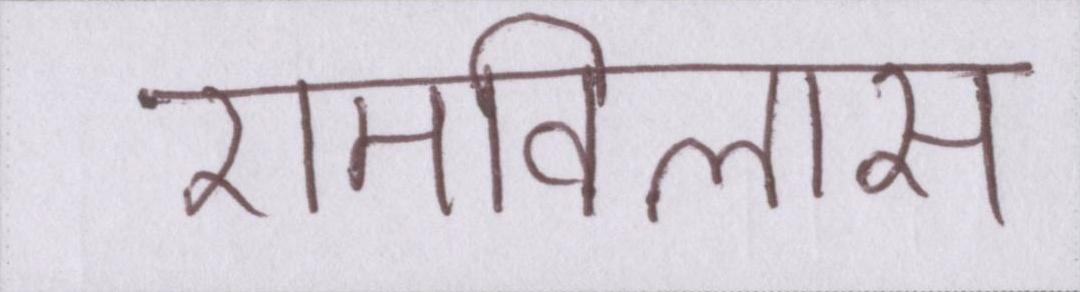 रामविलास